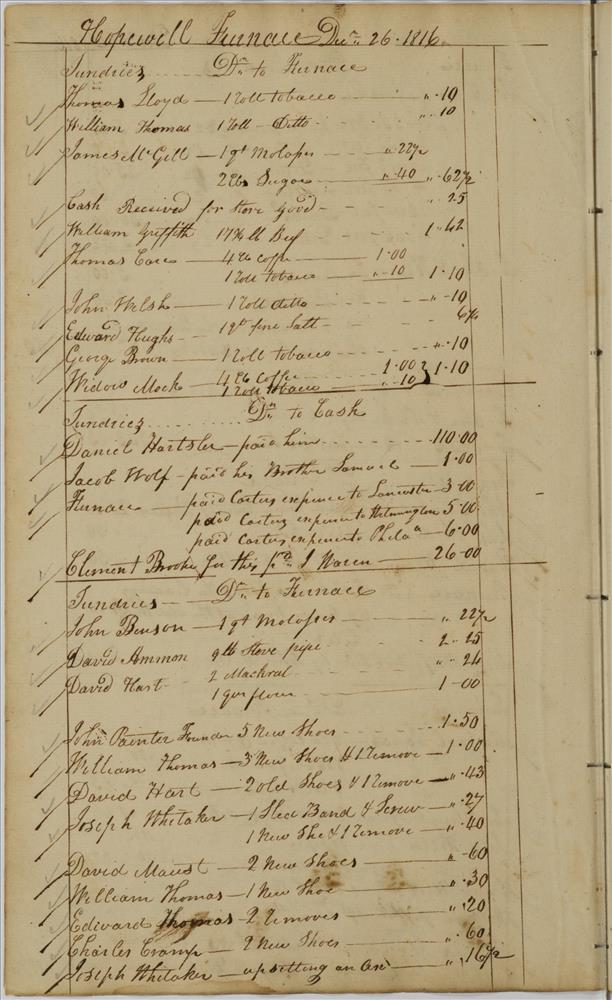 Hopewell Furnace Decr. 26. 1816
Sundries Dr. to Furnace
Thomas Lloyd — 1 Roll tobacco — " .10
William Thomas 1 Roll - Ditto " .10
James McGill — 1 qt Molases " 22½
2 lb Sugar " .40 " .62½
Cash Received for Store Good — " 25
William Griffith 17¾ lb Beef 1.42
Thomas Care — 4 lb Coffe — 1.00
1 Roll tobacco — " -10 1.10
John Welsh — 1 Roll ditto " -10
Edward Hughs — 1 qt fine Salt — 6¼
George Brown — 1 Roll tobacco " .10
Widow Mock — 4 lb Coffe 1.00 1.10
1 Roll tobacco " 10
Sundries Dr. to Cash
Daniel Hartsler — paid him 110.00
Jacob Wolf — paid his Brother Samuel — 1.00
Furnace — paid Carters expence to Lancaster 3.00
paid Carters expence to Wilmington 5.00
paid Carters expence to Philaa — 6.00
Clement Brooke for this pd. I Waren — 26-00
Sundries — Dr. to Furnace
John Benson — 1 qt Molosses " 22½
David Ammon 9 lb Stove pipe 2 - 25
David Hart — 2 Machral " - 24
1 qr flour 1-00
John Painter Founder 5 New Shoes 1.50
William Thomas — 3 New Shoes & 1 Remove — 1.00
David Hart — 2 old Shoes & 1 Remove — " .43
Joseph Whitaker — 1 Sled Band & Screw — " .27
1 New Shoe & 1 Remove — " .40
David Maust — 2 New Shoes — " -60
William Thomas — 1 New Shoe — " .30
Edward Thomas - 2 Removes " .20
Charles Cramp — 2 New Shoes — " . 60
Joseph Whitaker — upsetting an Axe — " 16½